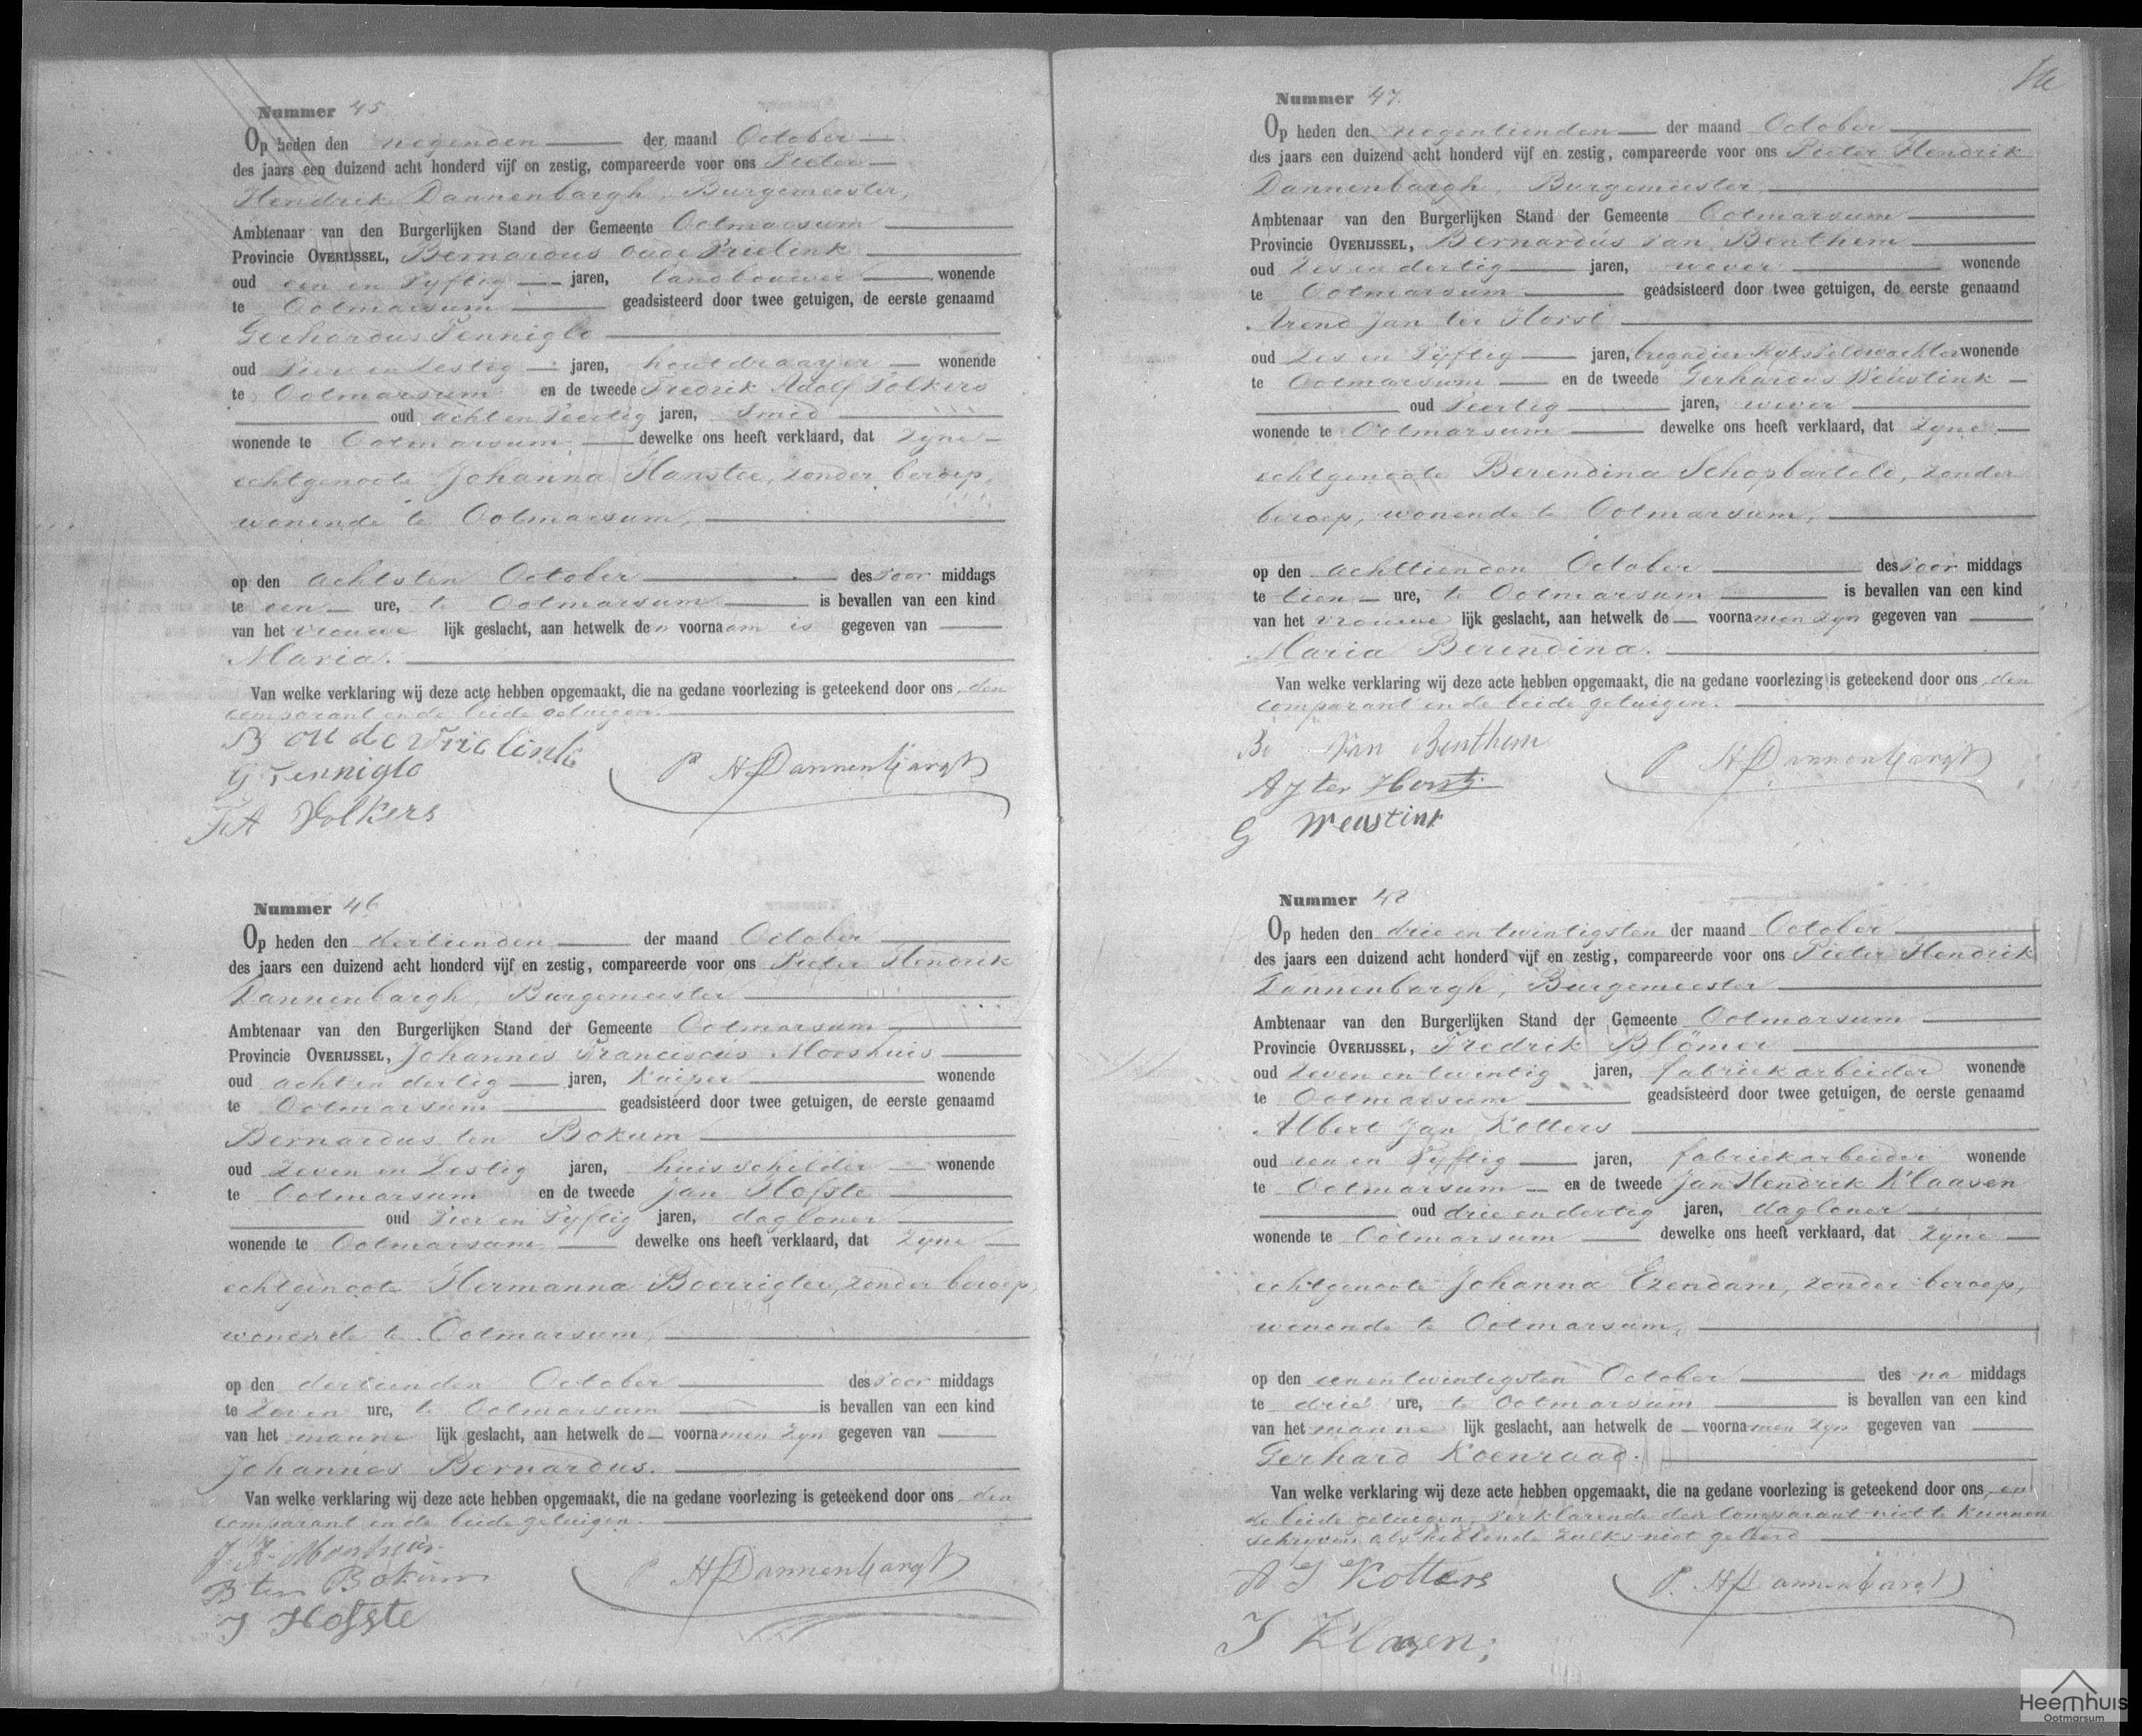 Nummer 45
Op heden den negenden der maand October
des jaars een duizend acht honderd vijf en zestig, compareerde voor ons Pieter
Hendrik Dannenbargh, Burgemeester,
Ambtenaar van den Burgerlijken Stand der Gemeente Ootmarsum
Provincie OVERIJSSEL, Bernardus oude Vrielink
oud een en Vyftig jaren, landbouwer wonende
te Ootmarsum geadsisteerd door twee getuigen, de eerste genaamd
Gerhardus Tenniglo
oud Vier en Zestig jaren, houtdraayer wonende
te Ootmarsum en de tweede Fredrik Adolf Volkers
oud acht en Veertig jaren, Smid
wonende te Ootmarsum dewelke ons heeft verklaard, dat Zyne
echtgenoote Johanna Hanstee, zonder beroep,
wonende te Ootmarsum,
op den achtsten October des voor middags
te een ure, te Ootmarsum is bevallen van een kind
van het vrouwe lijk geslacht, aan hetwelk den voornaam is gegeven van
Maria.
Van welke verklaring wij deze acte hebben opgemaakt, die na gedane voorlezing is geteekend door ons, den
comparant en de beide getuigen.
B oude Vrielink
G Tenniglo
P H Dannenbargh
F A Volkers
Nummer 46
Op heden den dertienden der maand October
des jaars een duizend acht honderd vijf en zestig, compareerde voor ons Pieter Hendrik
Dannenbargh, Burgemeester
Ambtenaar van den Burgerlijken Stand der Gemeente Ootmarsum
Provincie OVERIJSSEL, Johannes Franciscus Morshuis
oud acht en dertig jaren, Kuiper wonende
te Ootmarsum geadsisteerd door twee getuigen, de eerste genaamd
Bernardus ten Bokum
oud Zeven en Zestig jaren, huisschilder wonende
te Ootmarsum en de tweede Jan Hofste
oud Vier en Vyftig jaren, dagloner
wonende te Ootmarsum dewelke ons heeft verklaard, dat Zyne
echtgenoote Hermanna Boerrigter, zonder beroep,
wonende te Ootmarsum,
op den dertienden October des voor middags
te Zeven ure, te Ootmarsum is bevallen van een kind
van het manne lijk geslacht, aan hetwelk de voornamen zyn gegeven van
Johannes Bernardus.
Van welke verklaring wij deze acte hebben opgemaakt, die na gedane voorlezing is geteekend door ons, den
comparant en de beide getuigen.
J. F. Morshuis
B ten Bokum
P H Dannenbargh
J Hofste
Nummer 47.
Op heden den negentienden der maand October
des jaars een duizend acht honderd vijf en zestig, compareerde voor ons Pieter Hendrik
Dannenbargh, Burgemeester,
Ambtenaar van den Burgerlijken Stand der Gemeente Ootmarsum
Provincie OVERIJSSEL, Bernardus van Benthem
oud Zes en dertig jaren, wever wonende
te Ootmarsum geadsisteerd door twee getuigen, de eerste genaamd
Arend Jan ter Horst
oud Zes en Vyftig jaren, brigadier Ryksveldwachter wonende
te Ootmarsum en de tweede Gerhardus Weustink
oud Veertig jaren, wever
wonende te Ootmarsum dewelke ons heeft verklaard, dat Zyne
echtgenoote Berendina Schopbarteld, zonder
beroep, wonende te Ootmarsum,
op den achttienden October des voor middags
te tien ure, te Ootmarsum is bevallen van een kind
van het vrouwe lijk geslacht, aan hetwelk de voornamen zyn gegeven van
Maria Berendina.
Van welke verklaring wij deze acte hebben opgemaakt, die na gedane voorlezing is geteekend door ons, den
comparant en de beide getuigen.
Be van Benthem
P H Dannenbargh
A J ter Horst
G Weustink
Nummer 48
Op heden den drie en twintigsten der maand October
des jaars een duizend acht honderd vijf en zestig, compareerde voor ons Pieter Hendrik
Dannenbargh, Burgemeester
Ambtenaar van den Burgerlijken Stand der Gemeente Ootmarsum
Provincie OVERIJSSEL, Fredrik Blömer
oud Zeven en twintig jaren, fabriekarbeider wonende
te Ootmarsum geadsisteerd door twee getuigen, de eerste genaamd
Albert Jan Kotters
oud een en Vyftig jaren, fabriekarbeider wonende
te Ootmarsum en de tweede Jan Hendrik Klaasen
oud drie en dertig jaren, dagloner
wonende te Ootmarsum dewelke ons heeft verklaard, dat Zyne
echtgenoote Johanna Ezendam, zonder beroep,
wonende te Ootmarsum,
op den een en twintigsten October des na middags
te drie ure, te Ootmarsum is bevallen van een kind
van het manne lijk geslacht, aan hetwelk de voornamen zyn gegeven van
Gerhard Koenraad.
Van welke verklaring wij deze acte hebben opgemaakt, die na gedane voorlezing is geteekend door ons, en
de beide getuigen, verklarende den comparant niet te kunnen
schryven als hebbende zulks niet geleerd
A J Kotters
P. H Dannenbargh
J Klaasen
Heemhuis
Ootmarsum